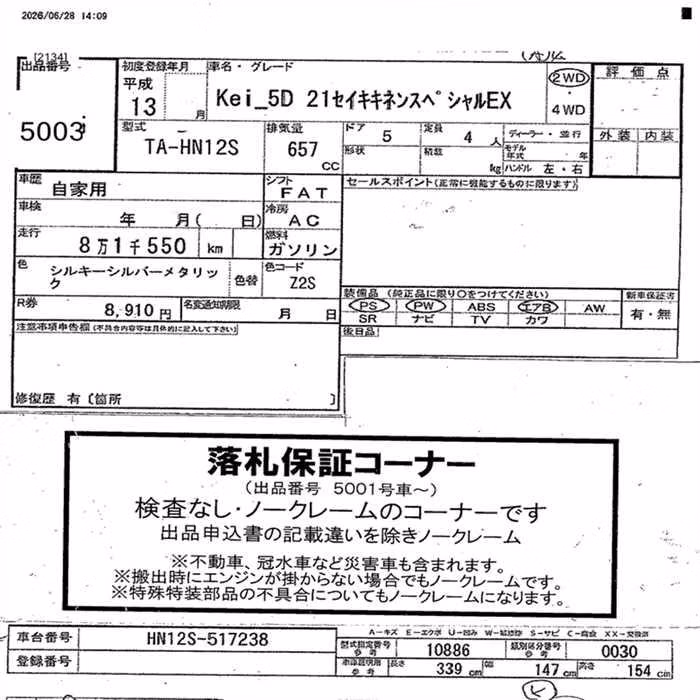 2026/06/28 14:09
[2134]
出品番号
5003
初度登録年月
平成
13 月
車名・グレード
Kei_5D 21セイキキネンスペシャルEX
2WD
・
4WD
評価点
外装 内装
型式
TA-HN12S
排気量
657
CC
ドア 5
形状
定員 4 人
積載 kg
ディーラー・並行
モデル年式 年
ハンドル 左・右
車歴
自家用
シフト
FAT
セールスポイント(正常に機能するものに限ります)
車検
年 月( 日)
冷房
AC
走行
8万1千550 km
燃料
ガソリン
色
シルキーシルバーメタリック
色替
色コード
Z2S
R券
8,910 円
名変通知期限
月 日
装備品 (純正品に限り○をつけてください)
PS PW ABS エアB AW
SR ナビ TV カワ
新車保証書
有・無
後日品
注意事項申告欄(不具合内容等は具体的に記入して下さい)
修復歴 有〔箇所 〕
落札保証コーナー
(出品番号 5001号車~)
検査なし・ノークレームのコーナーです
出品申込書の記載違いを除きノークレーム
※不動車、冠水車など災害車も含まれます。
※搬出時にエンジンが掛からない場合でもノークレームです。
※特殊特装部品の不具合についてもノークレームになります。
車台番号 HN12S-517238
登録番号
型式指定番号 参考 10886
類別区分番号 参考 0030
長さ 339 cm 幅 147 cm 高さ 154 cm